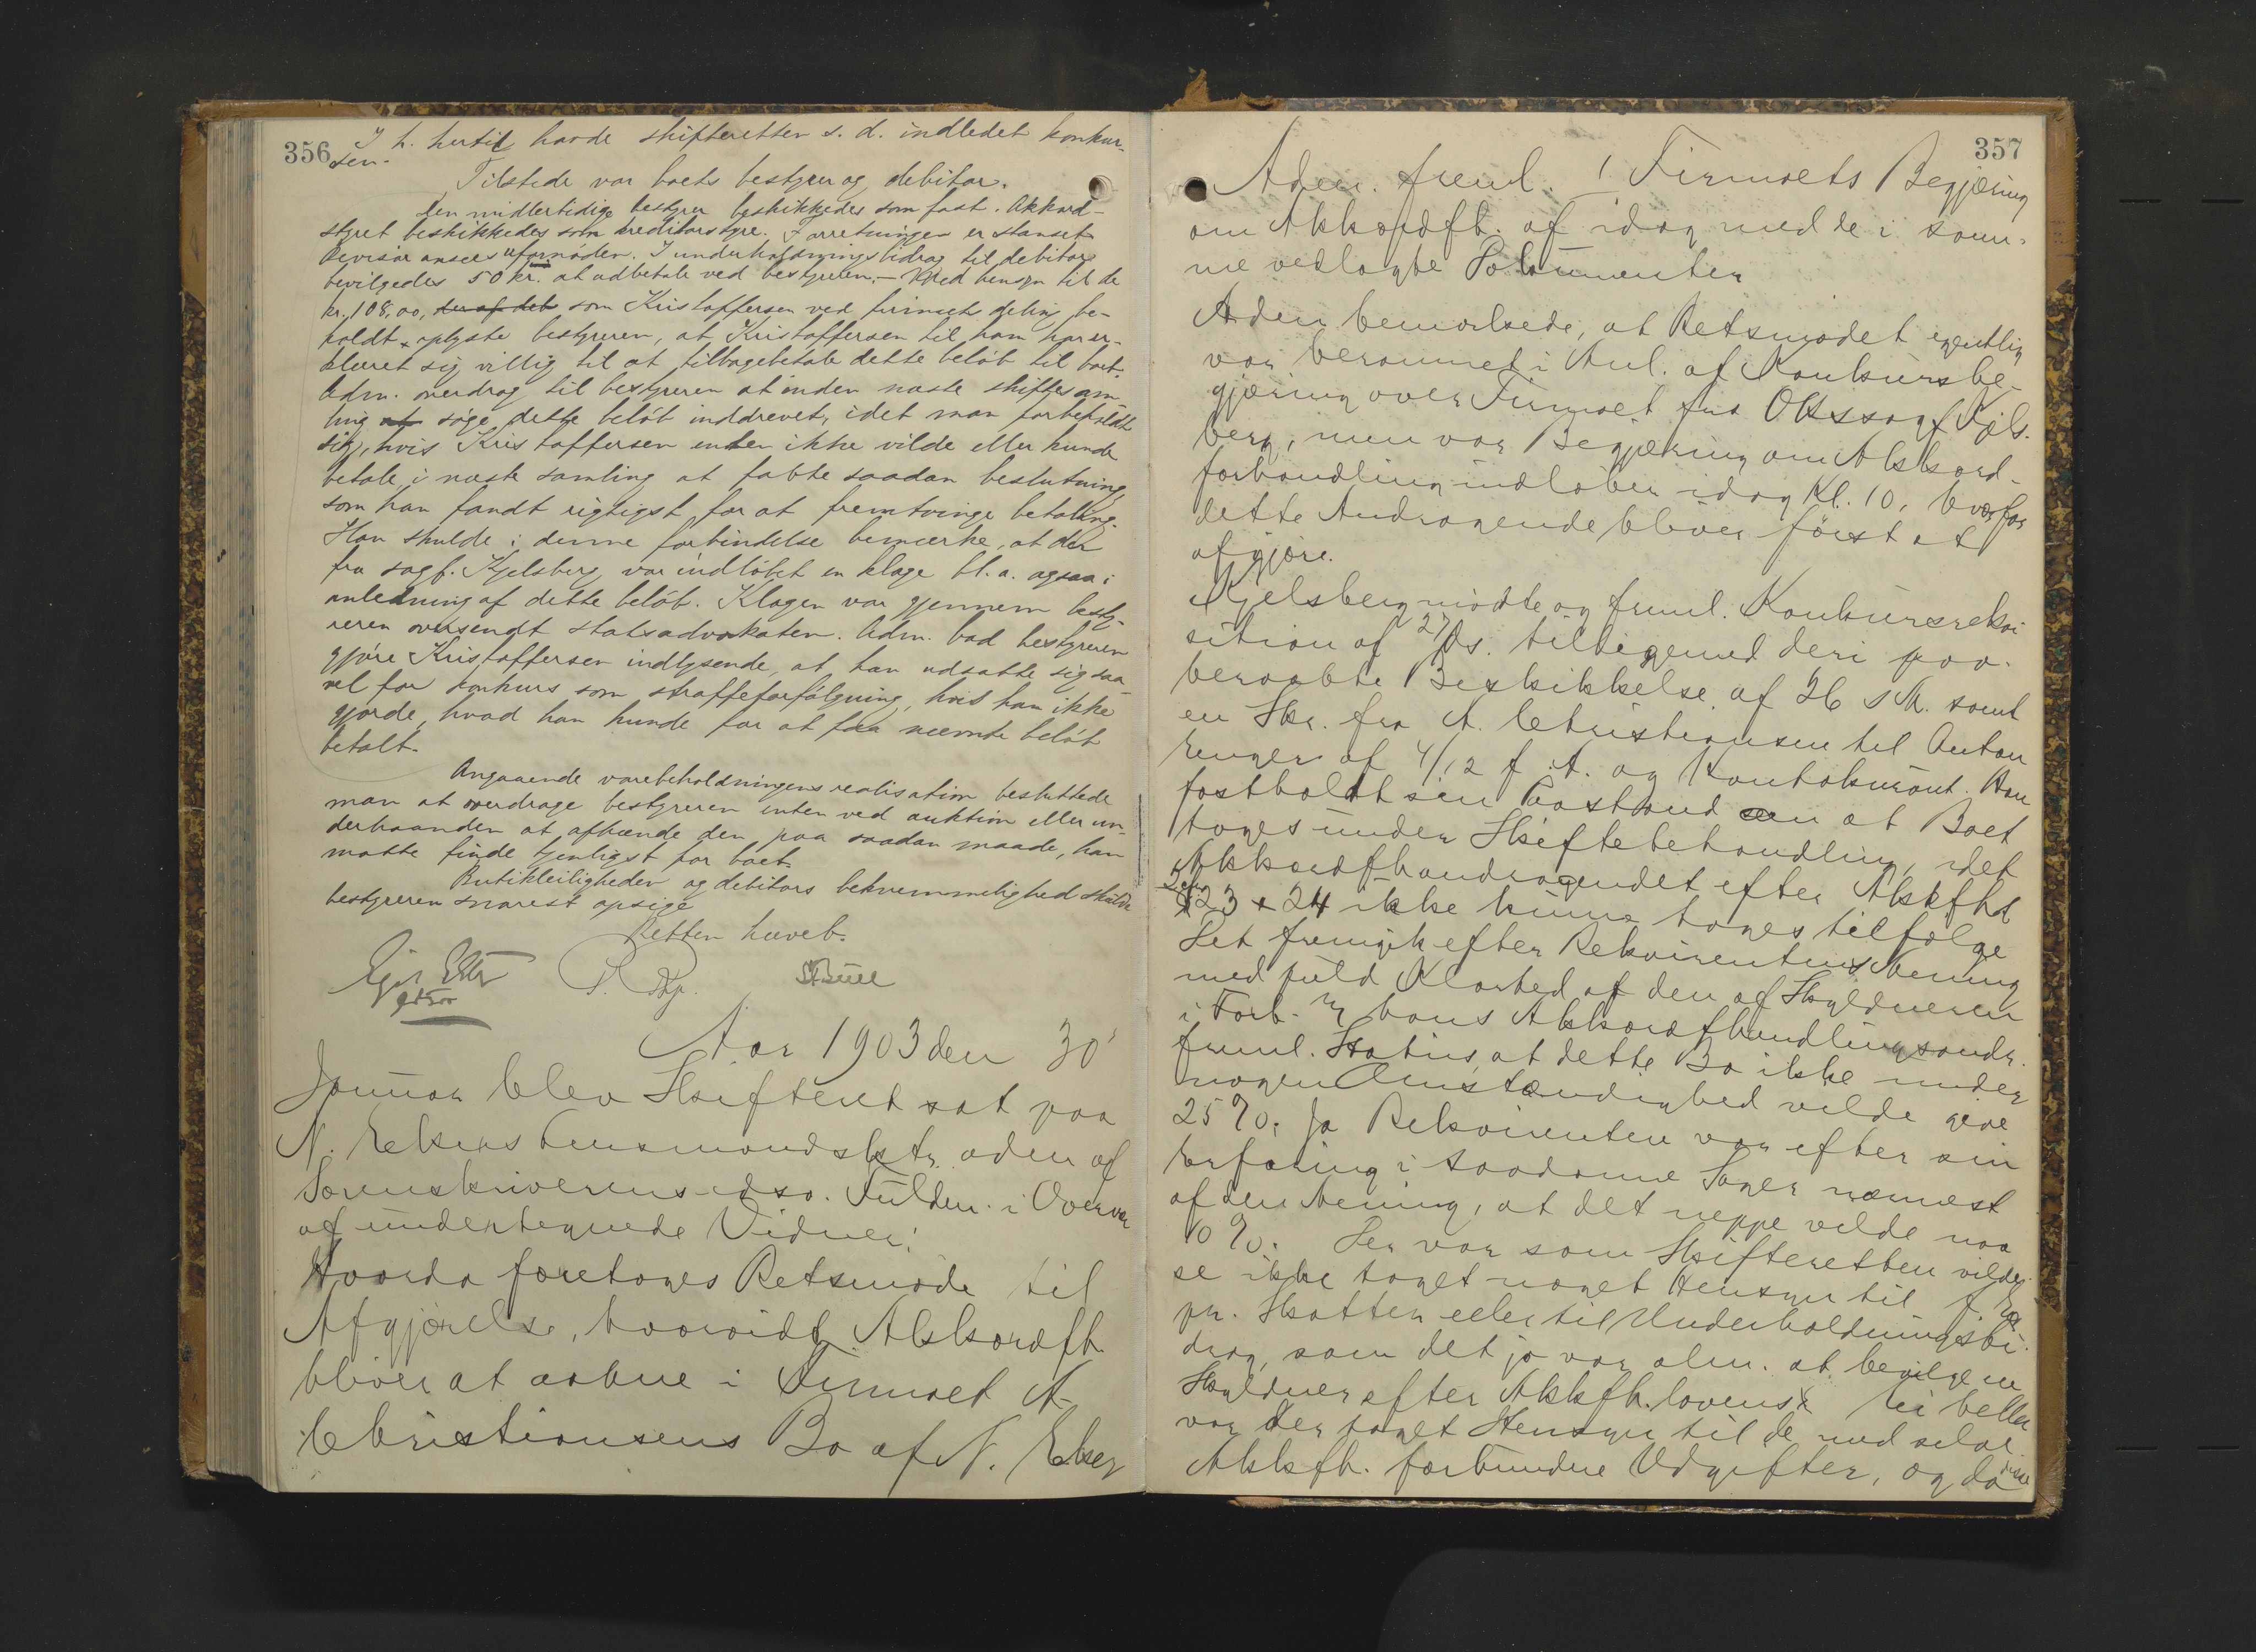 356
I h. hertil havde skifteretten s. d. indledet konkur-
sen.
Tilstede var boets bestyrer og debitor.
Den midlertidige bestyrer beskikkedes som fast. Akkord-
styret beskikkedes som kreditorstyre. Forretningen er stanset.
Revisor ansees ufornöden. I underholdningsbidrag til debitor
bevilgedes 50 kr. at udbetale ved bestyreren. — Med hensyn til de
kr. 108,00, som Kristoffersen ved firmaets deling be-
holdt oplyste bestyreren, at Kristoffersen til ham har er-
klæret sig villig til at tilbagebetale dette belöb til boet.
Adm. overdrog til bestyreren at inden næste skiftesam-
ling at söge dette belöb inddrevet, idet man forbeholdt
sig, hvis Kristoffersen enten ikke vilde eller kunde
betale i næste samling at fatte saadan beslutning,
som han fandt rigtigst for at fremtvinge betaling.
Han skulde i denne forbindelse bemærke, at der
fra sagf. Kjelsberg var indlöbet en klage bl. a. ogsaa i
anledning af dette belöb. Klagen var gjennem besty-
reren oversendt statsadvokaten. Adm. bad bestyreren
gjöre Kristoffersen indlysende, at han udsatte sig saa-
vel for konkurs som straffeforfölgning, hvis han ikke
gjorde, hvad han kunde for at faa nævnte belöb
betalt.
Angaaende varebeholdningens realisation besluttede
man at overdrage bestyreren enten ved auktion eller un-
derhaanden at afhænde den paa saadan maade, han
maatte finde tjenligst for boet.
Butikleiligheden og debitors bekvemmelighed skulde
bestyreren snarest opsige
Retten hævet.
Aar 1903 den 30'
Januar blev Skifteret sat paa
N. Elsens Lensmandsktr. adm af
Sorenskriverens edsv. Fuldm. i Overvær
af undertegnede Vidner:
Hvorda foretoges Retsmøde til
Afgjørelse, hvorvidt Akkordfh.
bliver at aabne i Firmaet A.
Christiansens Bo af N. Elsen
357
Adm. freml. 1 Firmaets Begjæring
om Akkordfh. af idag med de i sam-
me vedlagte Dokumenter
Adm bemærkede, at Retsmødet egentlig
var berammet i Anl. af Konkursbe-
gjæring over Firmaet fra Ovsagf Kjels-
berg, men var Begjæring om Akkord-
forhandling indløben idag Kl. 10, hvorfor
dette Andragende bliver først at
afgjøre.
Kjelsberg mødte og freml. Konkursrekvi-
sition af 27 ds. tilligemed deri paa-
beraabte Beskikkelse af 26 s M. samt
en Skr. fra A. Christiansen til Anton
af 4/12 f. A. og Kontokurant. Han
fastholdt sin Paastand om at Boet
toges under Skiftebehandling, idet
Akkordfhandragendet efter Akkfhl
§ 23 + 24 ikke kunne tages tilfølge
Det fremgik efter Rekvirentens Mening
med fuld Klarhed af den af Skyldneren
i Forb. m hans Akkordfhandlingsandr.
freml. Status, at dette Bo ikke under
nogen Omstændighed vilde give
25 %. Ja Rekvirenten var efter sin
Erfaring i saadanne Sager nærmest
af den Mening, at det neppe vilde naa
10 %. Der var som Skifteretten vilde
se ikke taget noget Hensyn til f. Ex
pr. Skatter eller til Underholdningsbi-
drag, som det jo var alm. at bevilge en
Skyldner efter Akkfh. lovens Ei heller
var der taget Hensyn til de med selve
Akkfh. forbundne Udgifter, og da disse